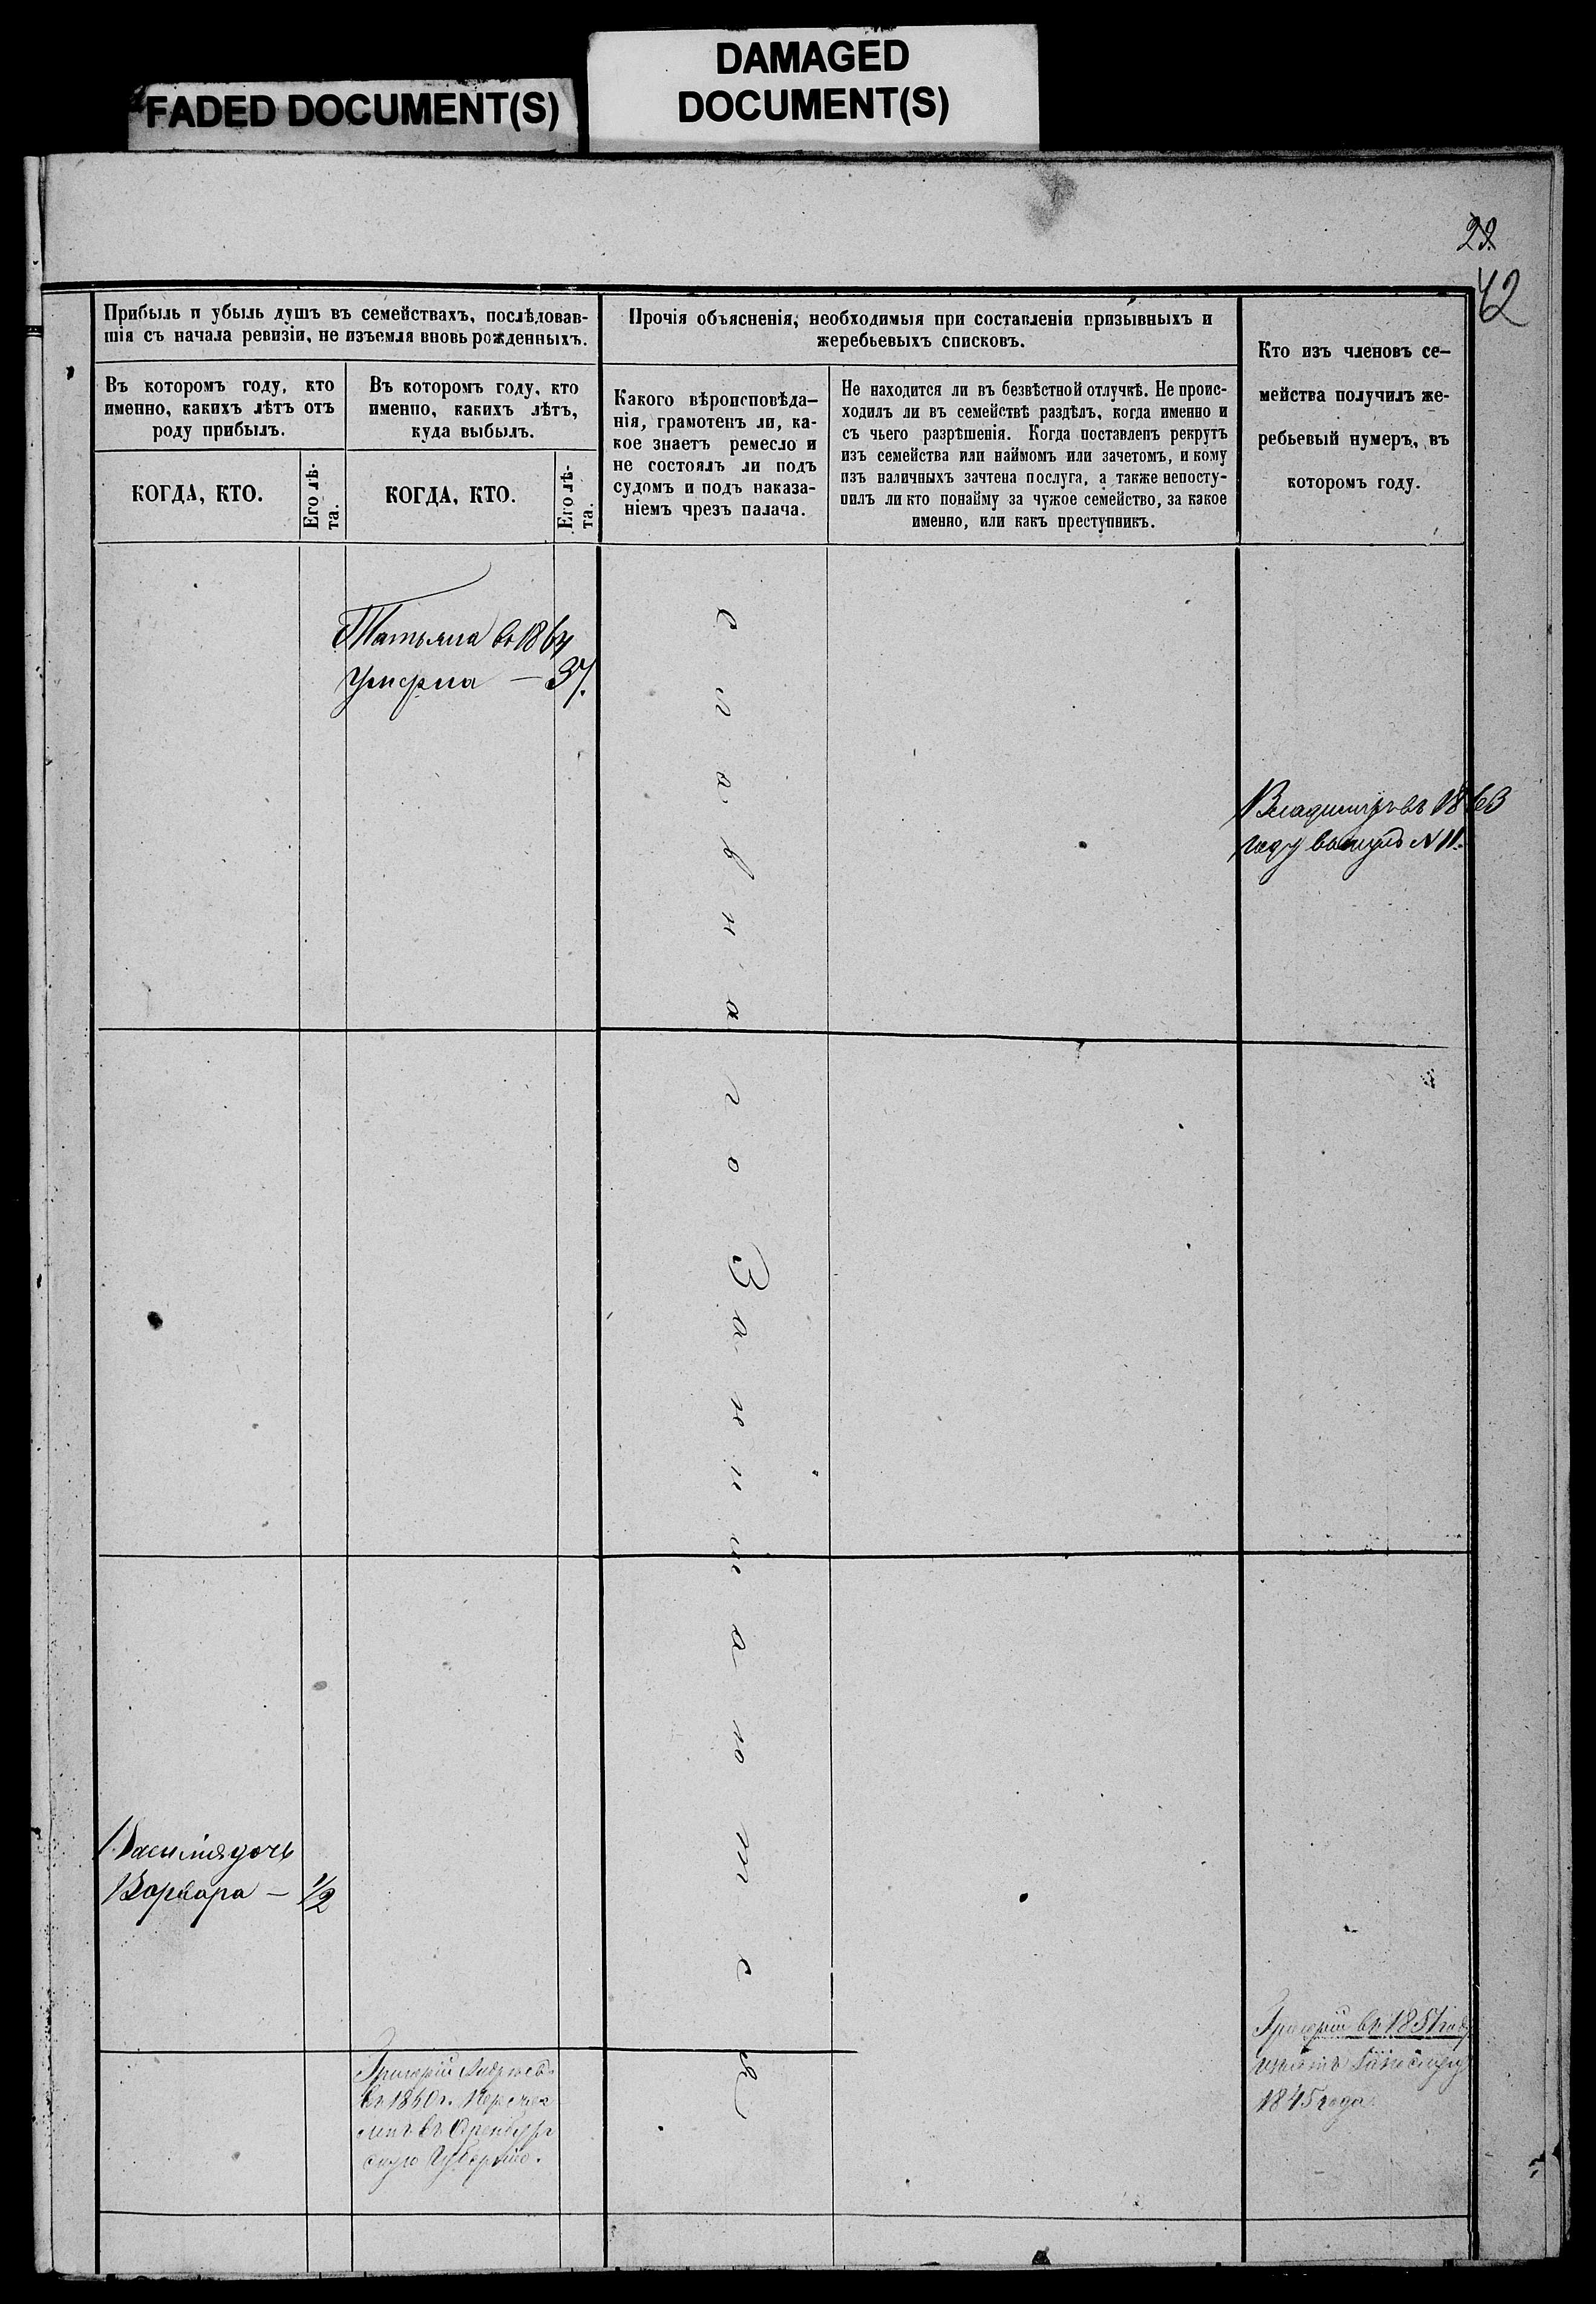 FADED DOCUMENT(S)
DAMAGED
DOCUMENT(S)
42
Прибыль и убыль душъ въ семействахъ, послѣдовав-
шія съ начала ревизіи, не изъемля вновь рожденныхъ.
Въ которомъ году, кто
именно, какихъ лѣтъ отъ
роду прибылъ.
КОГДА, КТО.
Его лѣ-
та.
Въ которомъ году, кто
именно, какихъ лѣтъ,
куда выбылъ.
КОГДА, КТО.
Его лѣ-
та.
Прочія объясненія, необходимыя при составленіи призывныхъ и
жеребьевыхъ списковъ.
Какого вѣроисповѣда-
нія, грамотенъ ли, ка-
кое знаетъ ремесло и
не состоялъ ли подъ
судомъ и подъ наказа-
ніемъ чрезъ палача.
Не находится ли въ безвѣстной отлучкѣ. Не проис-
ходилъ ли въ семействѣ раздѣлъ, когда именно и
съ чьего разрѣшенія. Когда поставленъ рекрутъ
изъ семейства или наймомъ или зачетомъ, и кому
изъ наличныхъ зачтена послуга, а также непосту-
пилъ ли кто понайму за чужое семейство, за какое
именно, или какъ преступникъ.
Кто изъ членовъ се-
мейства получилъ же-
ребьевый нумеръ, въ
которомъ году.
Татьяна въ 1864
умерла — 37.
Владиміръ въ 1863
году вынулъ N 11.
славнаго Занимаются
Василія дочь
Варвара — 1/2
Григорій Андреевъ
въ 1860 г. Перечис
ленъ въ Оренбург
скую Губернію.
Григорій въ 1851 году
1845 года